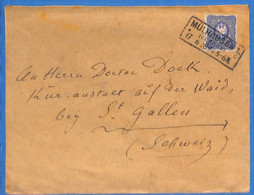 MÜLHAUSEN
An Herrn Doctor Dock.
Kur-anstalt auf der Waid,
bey St Gallen
(Schweiz)